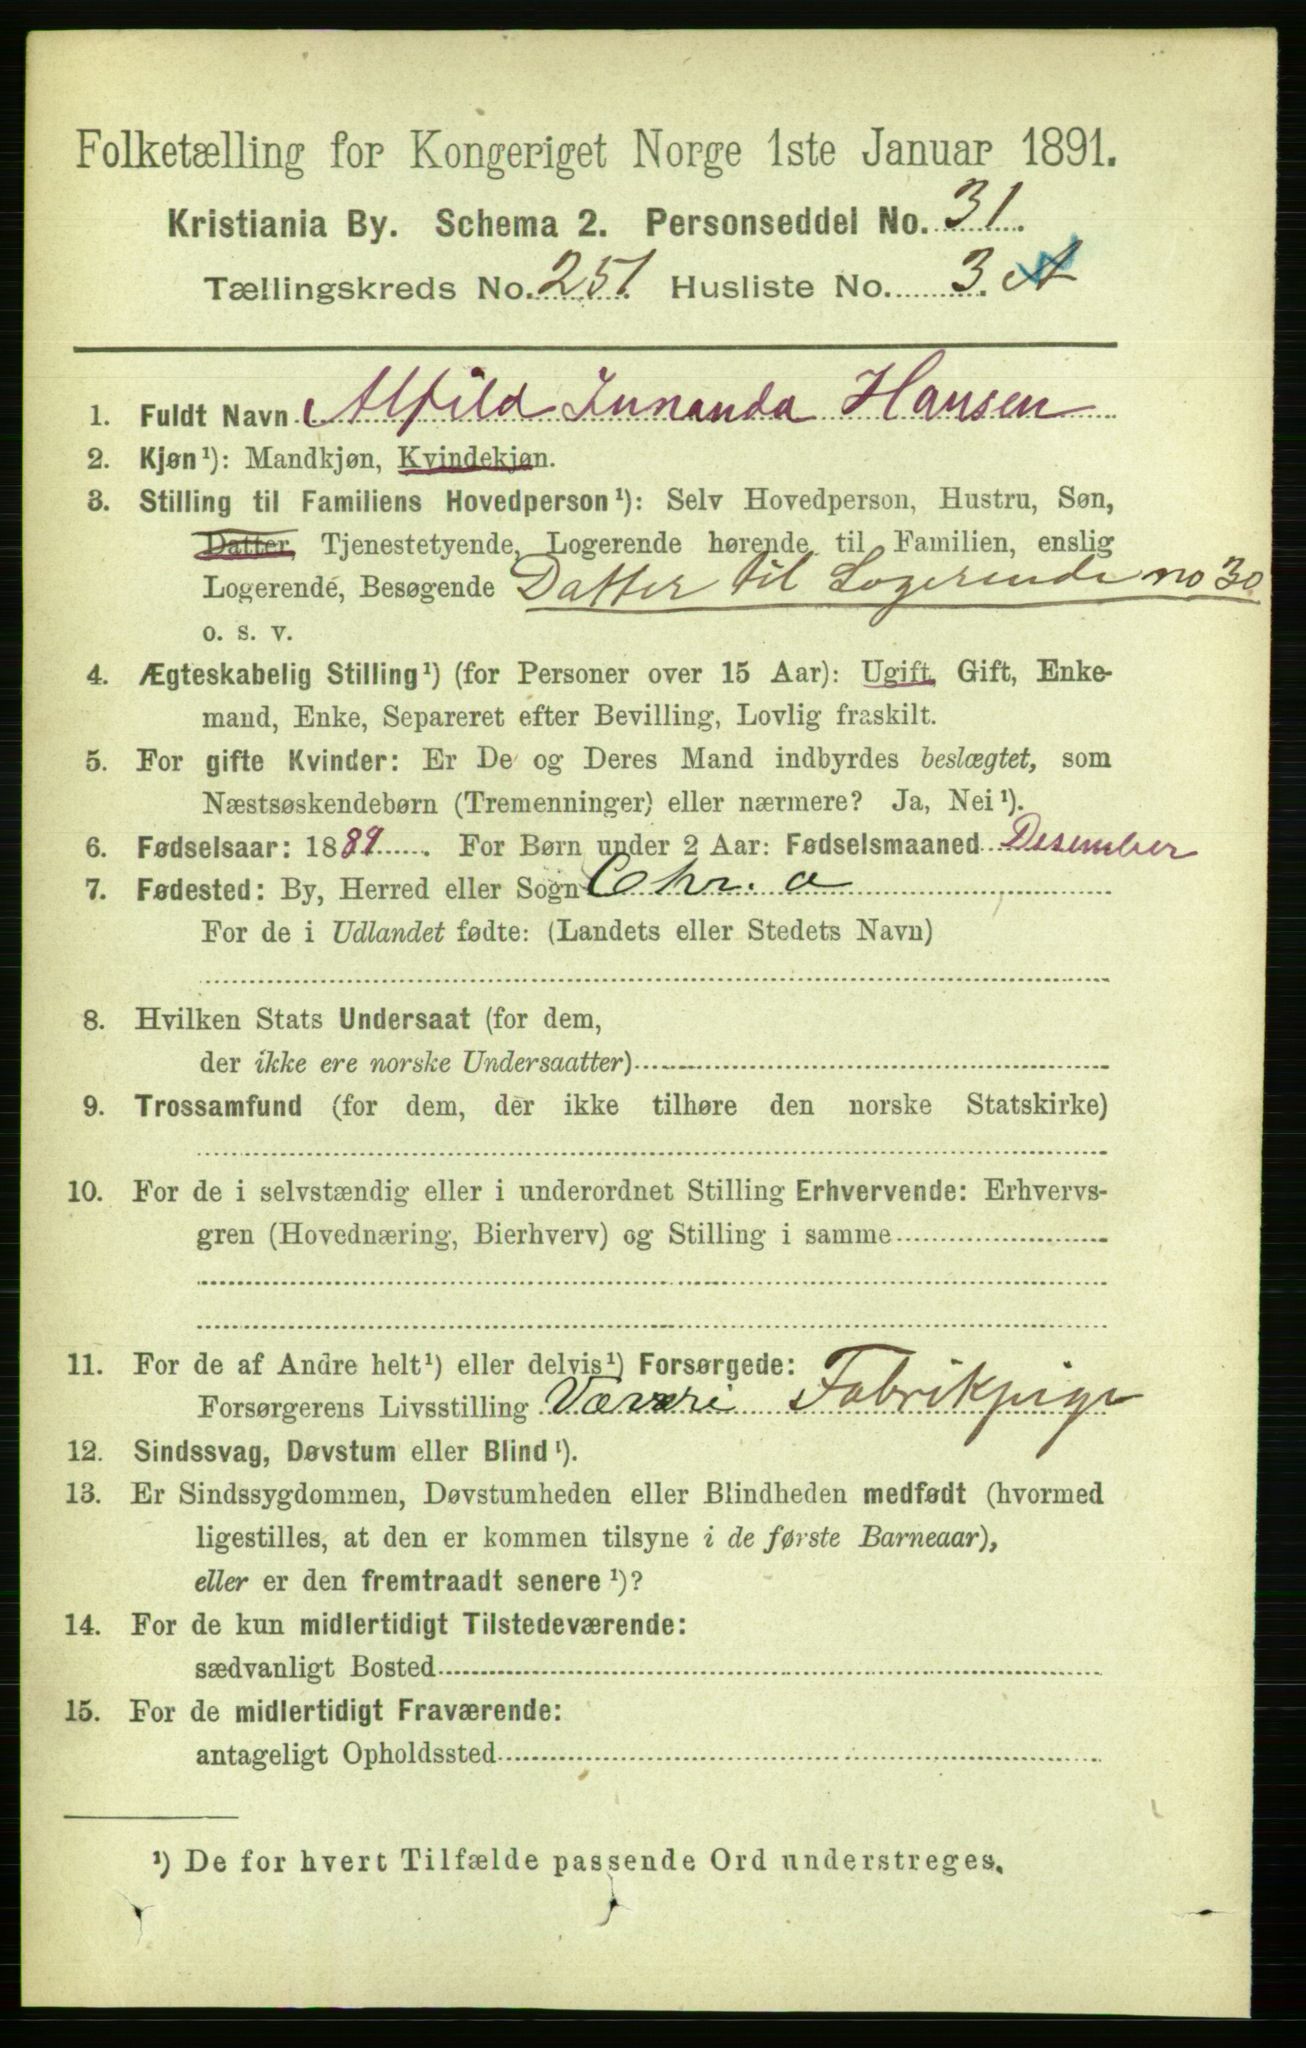 Folketælling for Kongeriget Norge 1ste Januar 1891.
Kristiania By. Schema 2. Personseddel No. 31.
Tællingskreds No. 251. Husliste No. 3. A
1. Fuldt Navn Alfild Hansen
2. Kjøn¹): Mandkjøn, Kvindekjøn.
3. Stilling til Familiens Hovedperson¹): Selv Hovedperson, Hustru, Søn,
Datter, Tjenestetyende, Logerende hørende til Familien, enslig
Logerende, Besøgende Datter til Logerende no 30
o. s. v.
4. Ægteskabelig Stilling¹) (for Personer over 15 Aar): Ugift, Gift, Enke-
mand, Enke, Separeret efter Bevilling, Lovlig fraskilt.
5. For gifte Kvinder: Er De og Deres Mand indbyrdes beslægtet, som
Næstsøskendebørn (Tremenninger) eller nærmere? Ja, Nei¹).
6. Fødselsaar: 1889. For Børn under 2 Aar: Fødselsmaaned Desember
7. Fødested: By, Herred eller Sogn Chr. a
For de i Udlandet fødte: (Landets eller Stedets Navn)
8. Hvilken Stats Undersaat (for dem,
der ikke ere norske Undersaatter)
9. Trossamfund (for dem, der ikke tilhøre den norske Statskirke)
10. For de i selvstændig eller i underordnet Stilling Erhvervende: Erhvervs-
gren (Hovednæring, Bierhverv) og Stilling i samme
11. For de af Andre helt¹) eller delvis¹) Forsørgede:
Forsørgerens Livsstilling Væveri Fabrikpige
12. Sindssvag, Døvstum eller Blind¹).
13. Er Sindssygdommen, Døvstumheden eller Blindheden medfødt (hvormed
ligestilles, at den er kommen tilsyne i de første Barneaar),
eller er den fremtraadt senere¹)?
14. For de kun midlertidigt Tilstedeværende:
sædvanligt Bosted
15. For de midlertidigt Fraværende:
antageligt Opholdssted
¹) De for hvert Tilfælde passende Ord understreges.